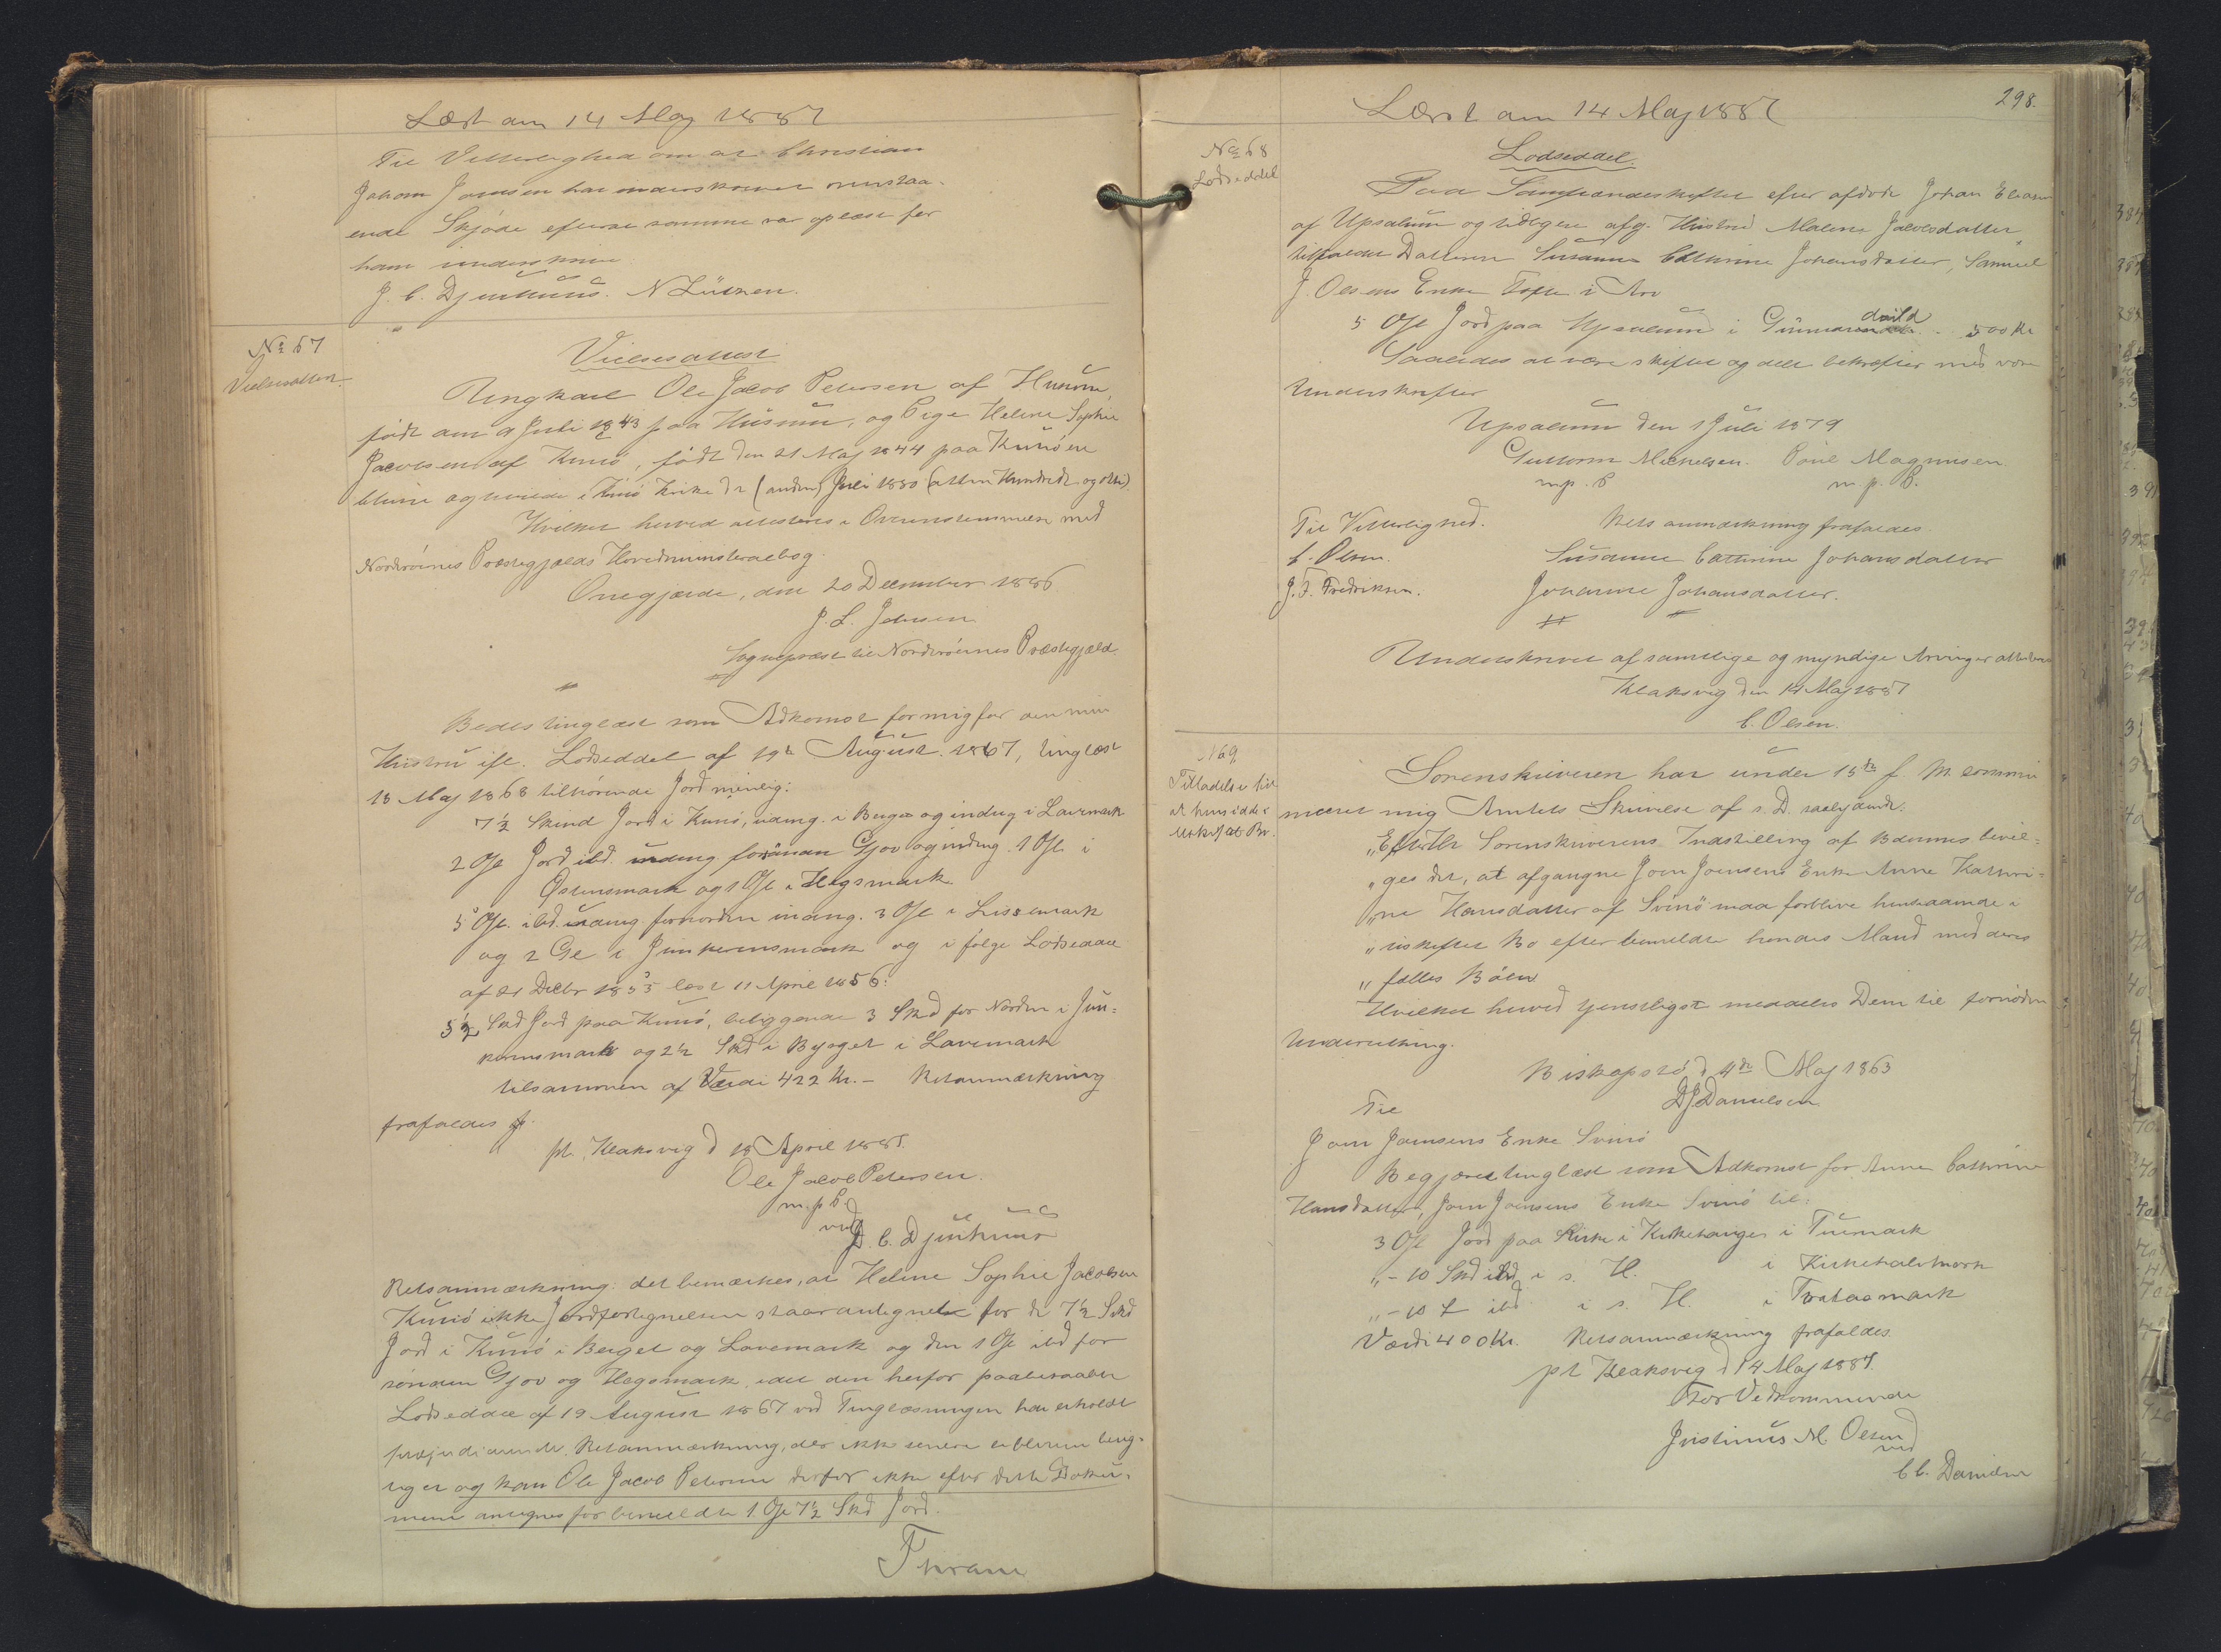 Læst am 14 Maj 1887
Til Vitterlighed om at Christian
Johan Joensen har underskrevet ovenstaa-
ende Skjøde efterat samme var oplæst for
ham underskrive.
J. C. Djurhuus. N Lützen.
No 67
Vielsesattest.
Vielsesattest
Ungkarl Ole Jacob Petersen af Husum,
født am 9 Juli 1843 paa Husum, og Pige Helene Sophie
Jacobsen af Kunø, født den 21 Maj 1844 paa Kunø ere
blevne ægteviede i Kunø Kirke d 2 (anden) Juli 1880 (atten Hundrede og otti).
Hvilket herved attesteres i Overensstemmelse med
Norderøernes Præstegjælds Hovedministerialbog.
Onegjærde, den 20 December 1886
J. L. Jensen
Sognepræst til Norderøernes Præstegjæld.
Bedes tinglæst som Adkomst for mig for den min
Hustru ifl. Lodseddel af 19de August 1867, tinglæst
18 Maj 1868 tilhørende Jord nemlig:
7½ Skind Jord i Kunø, udmg. i Berget og indmg i Lavemark
2 Gl Jord ibd. udmg. for sønnan Gjov og indmg. 1 Gl. i
Østensmark og 1 Gl i Høgsmark.
5 Gl. ibd. udmg fornorden indmg. 3 Gl i Lissemark
og 2 Gl i Junkerensmark og i følge Lodseddel
af 21 Decbr 1855 læst 11 April 1856:
5½ Skd Jord paa Kunø, beliggende 3 Skd for Norden i Jun-
kerensmark og 2½ Skd i Byrget i Lavemark
tilsammen af Værdi 422 Kr. - Retsanmærkning
frafaldes
pt. Klaksvig d 18 April 1887.
Ole Jacob Petersen.
m. p. P.
ved
J. C. Djurhuus
Retsanmærkning: det bemærkes, at Helene Sophie Jacobsen
Kunø ikke i Jordfortegnelsen staar antegnet for de 7½ Skd
Jord i Kunø i Berget og Lavemark og den 1 Gl ibd for
sønnan Gjov og Høgsmark, idet den herfor paaberaabte
Lodseddel af 19 August 1867 ved Tinglæsningen har erholdt
præjudicerende Retsanmærkning, der ikke senere er bleven berig-
tiget og kan Ole Jacob Petersen derfor ikke efter dette Doku-
ment antegnes for bemeldte 1 Gl 7½ Skd Jord.
Thrane
298.
Læst am 14 Maj 1887
No 68
Lodseddel
Lodseddel.
Paa Samfrændeskiftet efter afdøde Johan Eliasen
af Upsalum og tidligere afg. Hustru Malene Jacobsdatter
tilfaldt Datteren Susanna Cathrine Johansdatter, Samuel
J. Olsens Enke Tofte i Arv
5 Gl Jord paa Upsalum i Gunnarsdaild . . 500 Kr
Saaledes at være skiftet og delt bekræfter med vore
Underskrifter
Upsalum den 1 Juli 1879
Guttorm Michelsen. Poul Magnusen
m. p. P. m. p. P.
Til Vitterlighed. Rets anmærkning frafaldes.
C. Olsen. Susanne Cathrine Johansdatter
J. F. Fredriksen. Johanne Johansdatter.
Underskrevet af samtlige og myndige Arvinger attesteres
Klaksvig den 14 Maj 1887
C. Olsen.
No 69
Tilladelse til
at hensidde i
uskiftet Bo.
Sorenskriveren har under 15de f. M. commu-
niceret mig Amtets Skrivelse af s. D. saalydende:
„Efter Hr Sorenskriverens Indstilling af Bemmes bevil-
„ges det, at afgangne Joen Joensens Enke Anne Kathri-
„ne Hansdatter af Svinø maa forblive hensiddende i
„uskiftet Bo efter bemeldte hendes Mand med deres
„fælles Børn
Hvilket herved tjenstligst meddeles Dem til fornøden
Underretning.
Biskopstø d 4de Maj 1863
DJ Danielsen
Til
Joen Joensens Enke Svinø
Begjæres tinglæst som Adkomst for Anne Cathrine
Hansdatter, Joen Joensens Enke Svinø til:
3 Gl Jord paa Kirke i Kirkehauge i Tuemark
„ - 10 Skd ibd i s. H. i Kirkehalvmark
„ - 10 „ ibd i s. H. i Tvataamark
Værdi 400 Kr. Retsanmærkning frafaldes.
pt Klaksvig d 14 Maj 1887.
For Vedkommende
Justinus M. Olsen
ved
C C. Danielsen